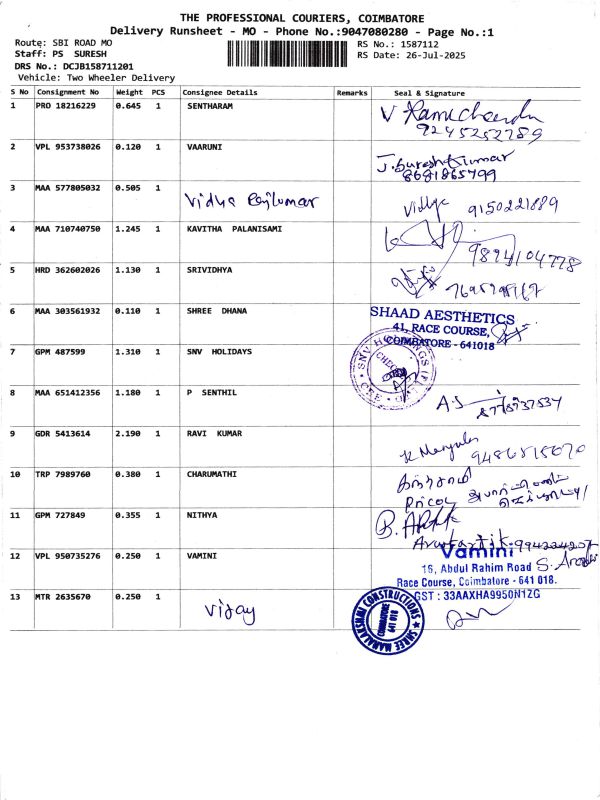 THE PROFESSIONAL COURIERS, COIMBATORE
Delivery Runsheet - MO - Phone No.:9047080280 - Page No.:1
Route: SBI ROAD MO
RS No.: 1587112
Staff: PS SURESH
RS Date: 26-Jul-2025
DRS No.: DCJB158711201
Vehicle: Two Wheeler Delivery
S No Consignment No Weight PCS Consignee Details Remarks Seal & Signature
1 PRO 18216229 0.645 1 SENTHARAM V Ramachandra
9245252789
2 VPL 953738026 0.120 1 VAARUNI J. Sureshkumar
8681865499
3 MAA 577805032 0.505 1 Vidya Rajkumar Vidya 9150221889
4 MAA 710740750 1.245 1 KAVITHA PALANISAMI
9894104778
5 HRD 362602026 1.130 1 SRIVIDHYA
6 MAA 303561932 0.110 1 SHREE DHANA SHAAD AESTHETICS
41, RACE COURSE,
COIMBATORE - 641018
7 GPM 487599 1.310 1 SNV HOLIDAYS
8 MAA 651412356 1.180 1 P SENTHIL A.S
9 GDR 5413614 2.190 1 RAVI KUMAR
10 TRP 7989760 0.380 1 CHARUMATHI
11 GPM 727849 0.355 1 NITHYA
12 VPL 950735276 0.250 1 VAMINI Vamini
16, Abdul Rahim Road
Race Course, Coimbatore - 641 018.
GST : 33AAXHA9950N1ZG
13 MTR 2635670 0.250 1 Vijay
SHREE MAHALAKSHMI CONSTRUCTIONS
COIMBATORE
641 018